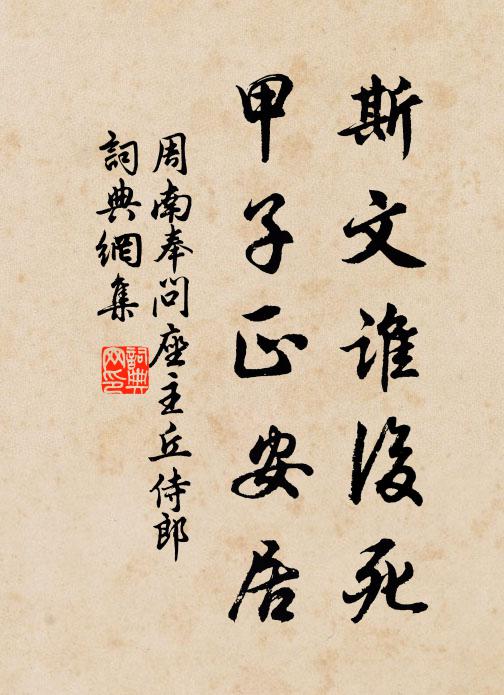 斯文誰後死
甲子正安居
周南奉問座主丘侍郎
詞典網集
詞典网印